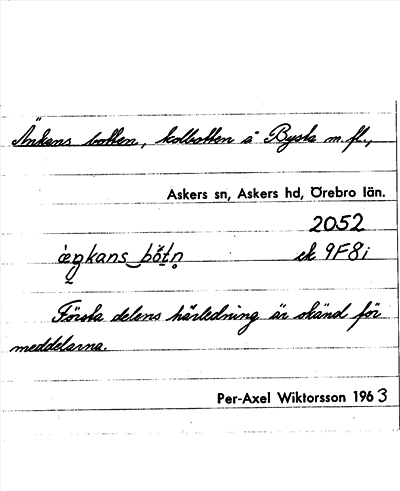 Änkans botten, kolbotten å Bysta m. fl.,
Askers sn, Askers hd, Örebro län.
2052
ek 9F8i
Första delens härledning är okänd för
meddelarna.
Per-Axel Wiktorsson 1963